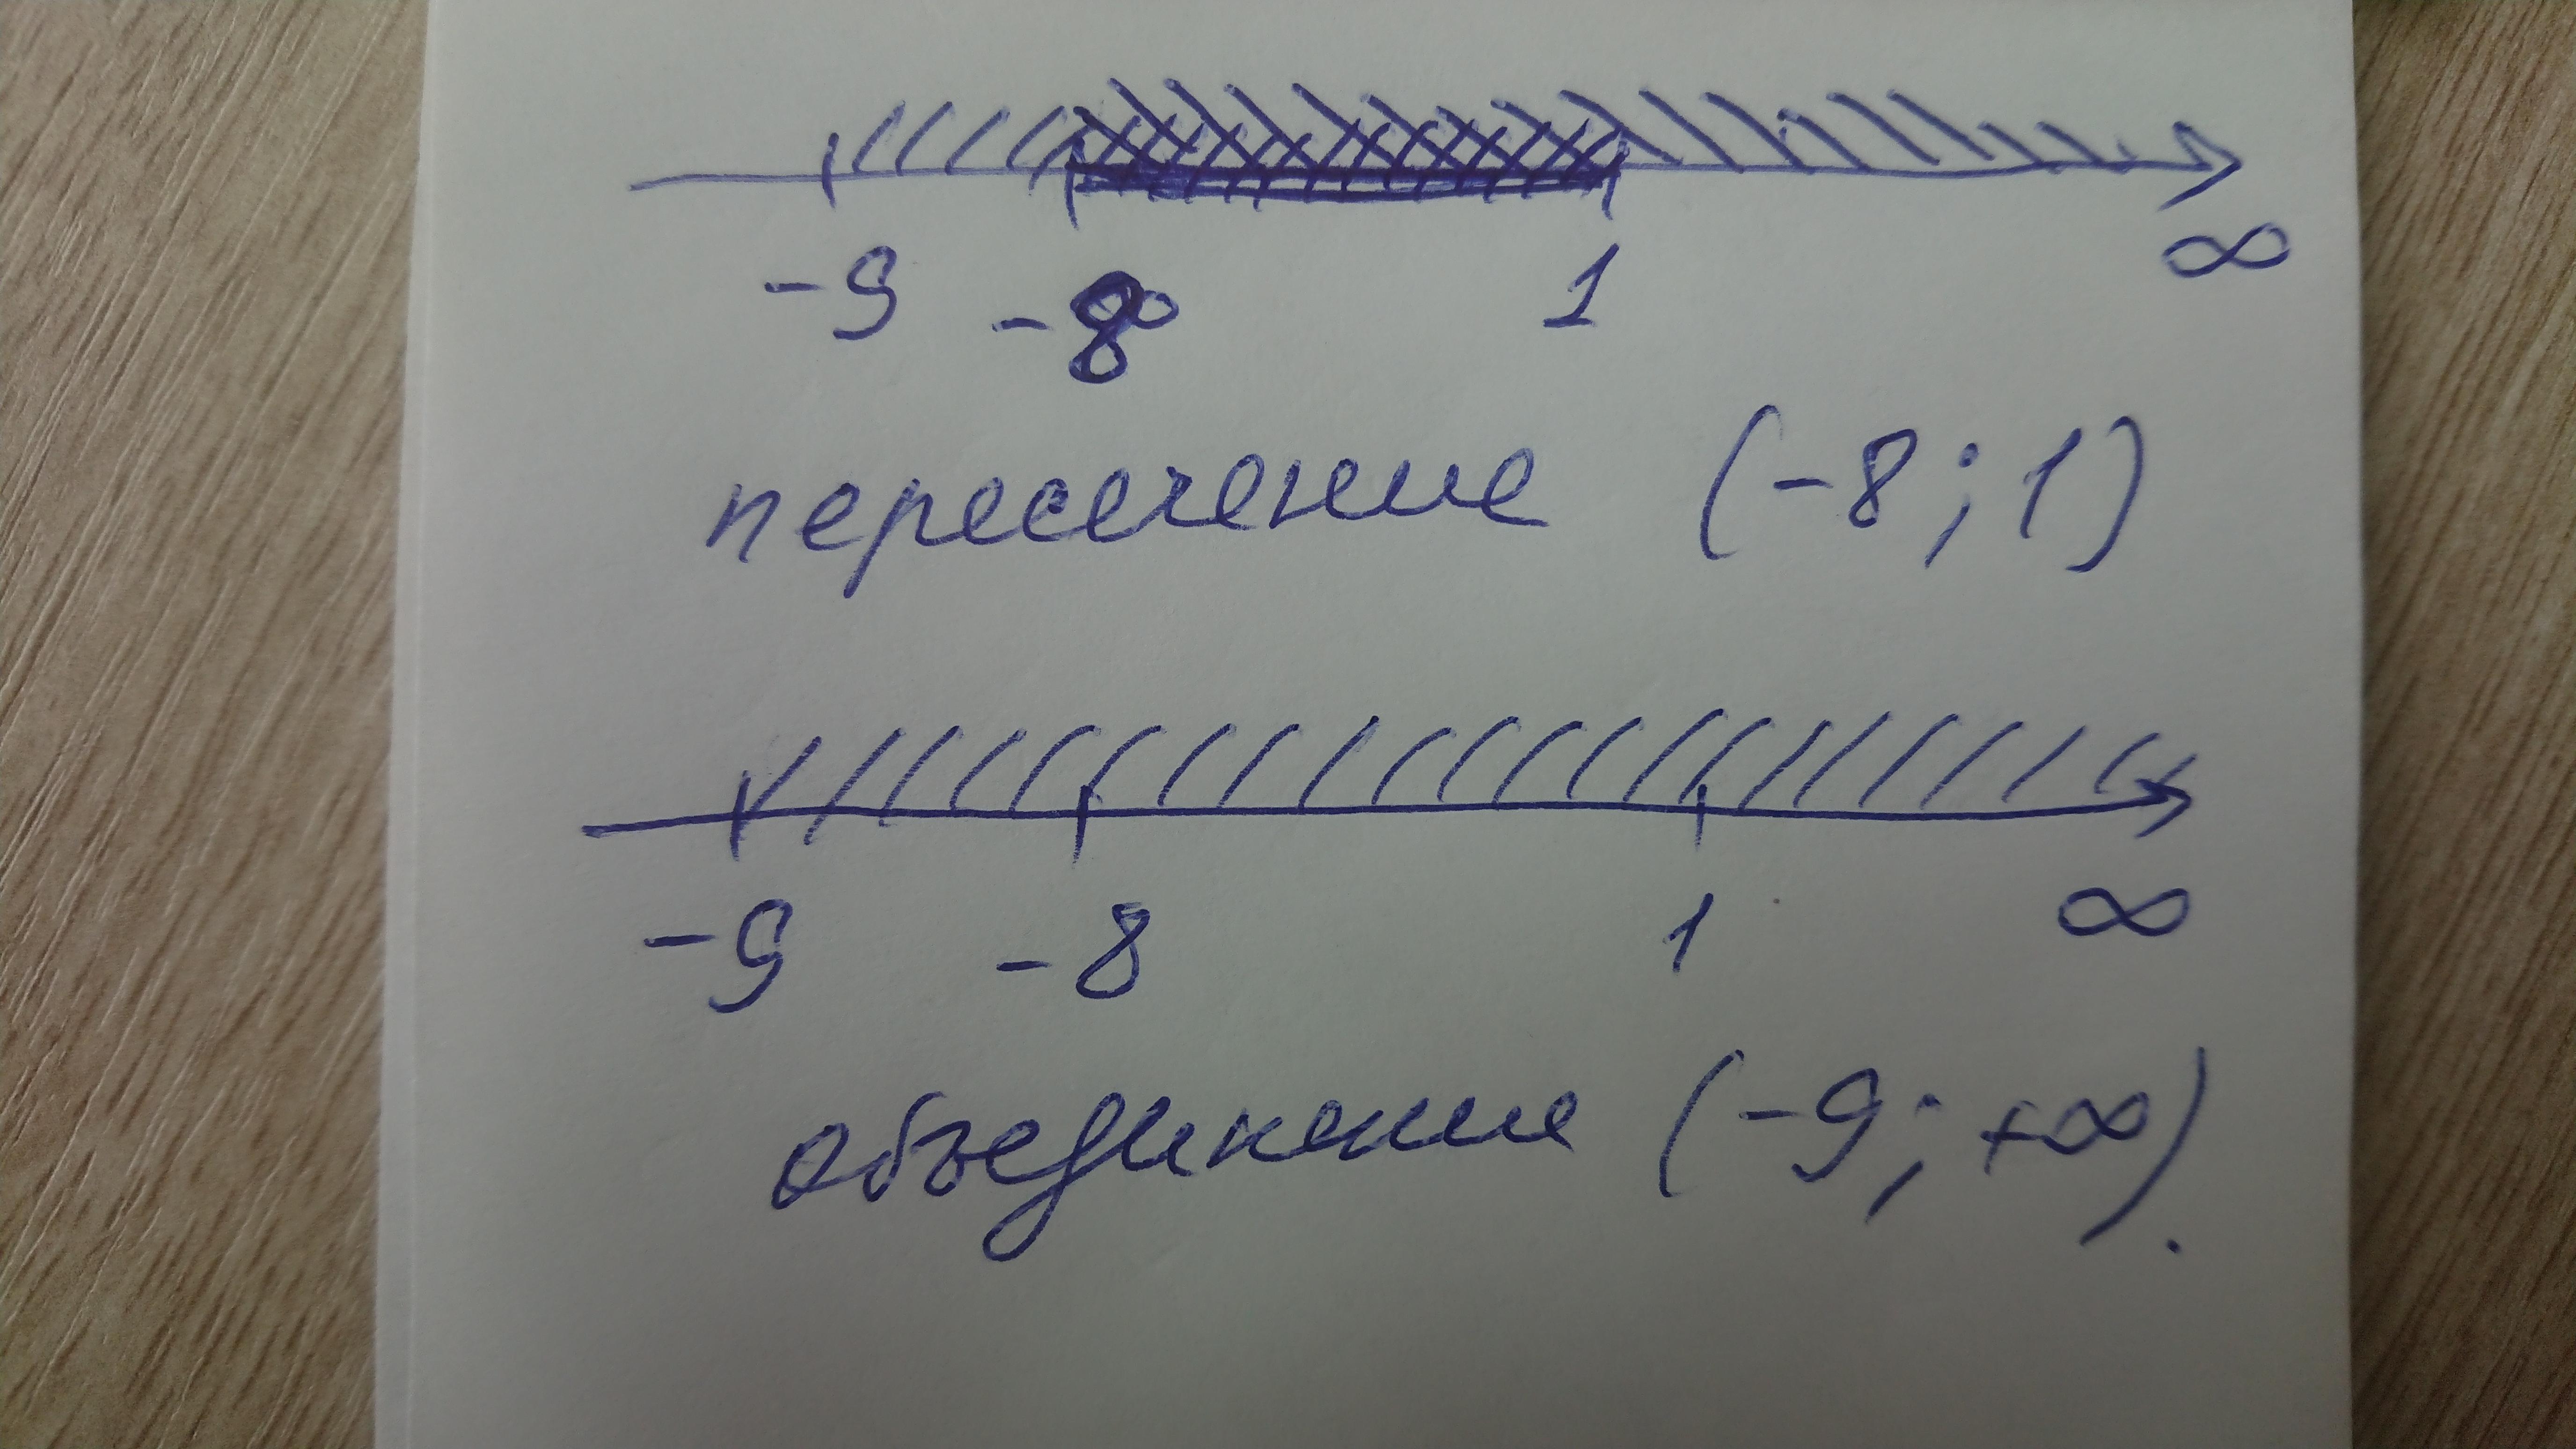 -9 -8 1 ∞
пересечение (-8; 1)
-9 -8 1 ∞
объединение (-9; +∞).